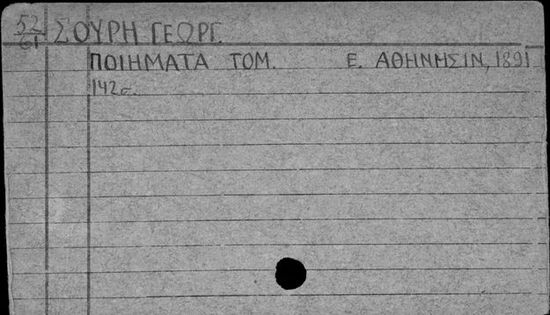 52
61
ΣΟΥΡΗ ΓΕΩΡΓ.
ΠΟΙΗΜΑΤΑ ΤΟΜ. Ε. ΑΘΗΝΗΣΙΝ, 1891
142σ.